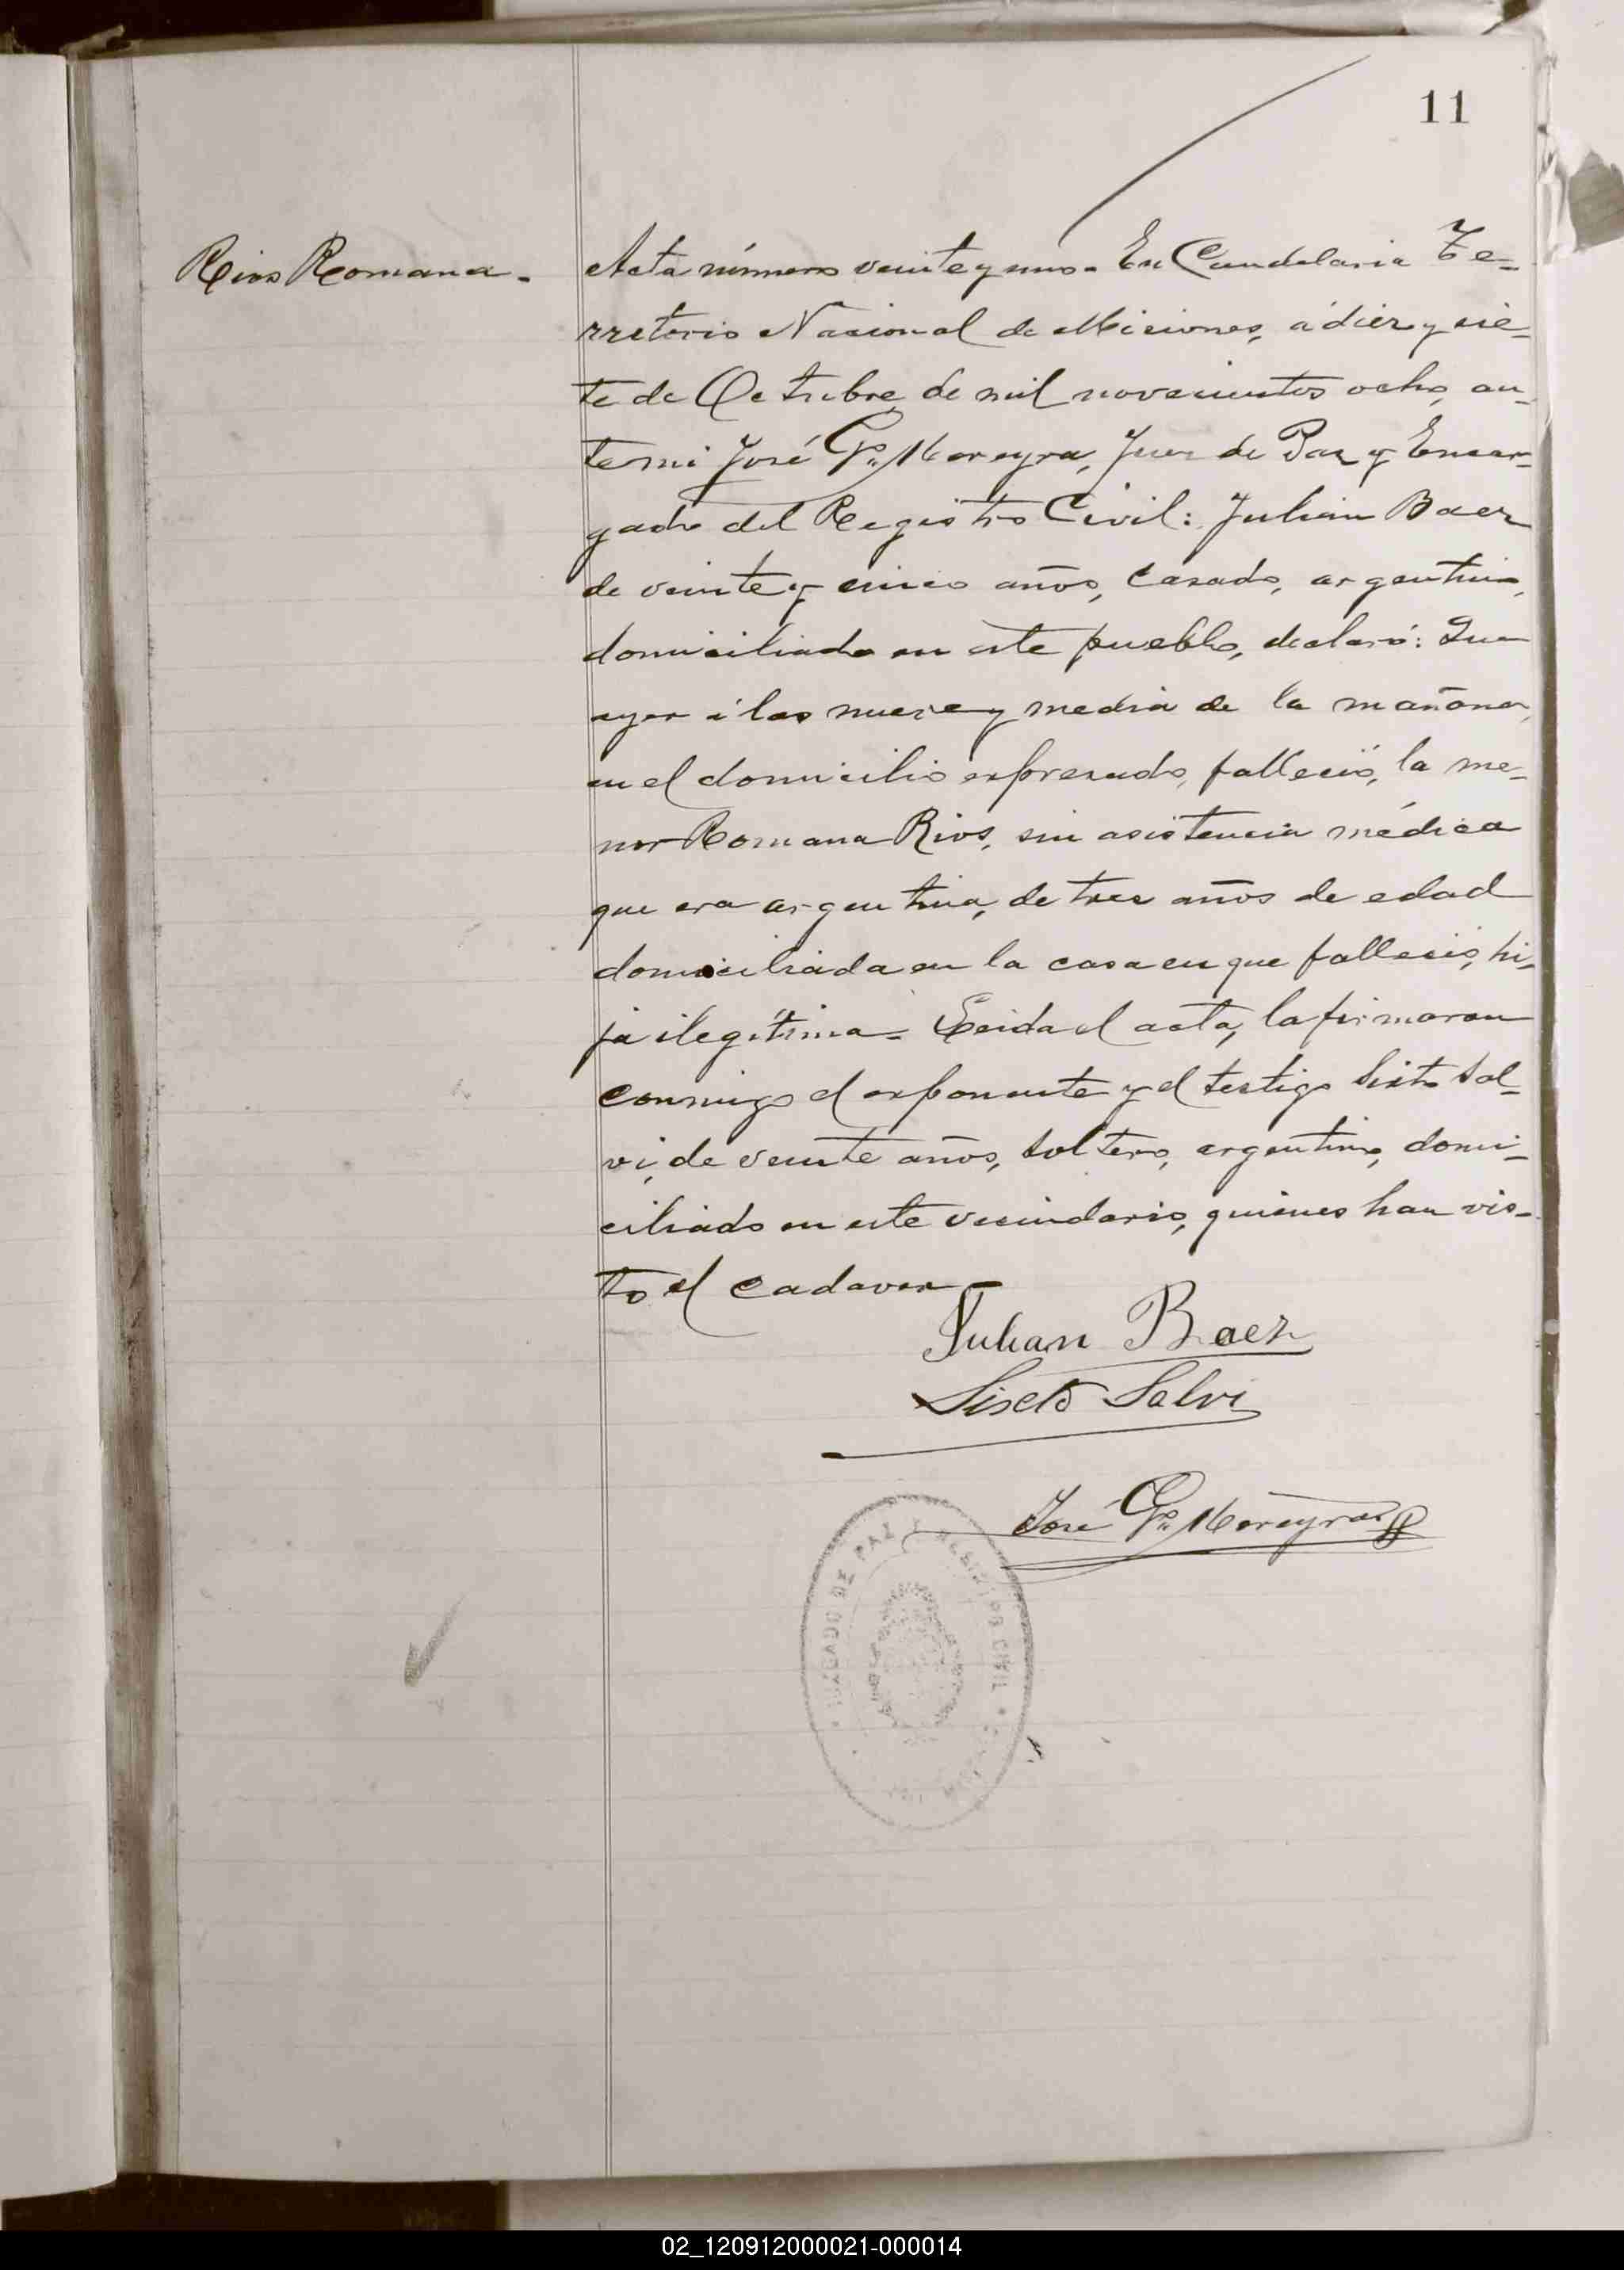 11
Rios Romana.
Acta número veinte y uno. En Candelaria Te-
rritorio Nacional de Misiones, á diez y sie-
te de Octubre de mil novecientos ocho, an-
te mi José Gº Moreyra, Juez de Paz y Encar-
gado del Registro Civil: Julian Baez
de veinte y cinco años, casado, argentino,
domiciliado en este pueblo, declaró: Que
ayer á las nueve y media de la mañana,
en el domicilio expresado, falleció, la me-
nor Romana Rios, sin asistencia médica
que era argentina, de tres años de edad
domiciliada en la casa en que falleció, hi-
ja ilegítima. Leida el acta, la firmaron
conmigo el exponente y el testigo Sixto Sal-
vi, de veinte años, soltero, argentino, domi-
ciliado en este vecindario, quienes han vis-
to el cadaver.
Julian Baez
Sixto Salvi
José Gº Moreyra
JUZGADO DE PAZ Y REGISTRO CIVIL
02_120912000021-000014